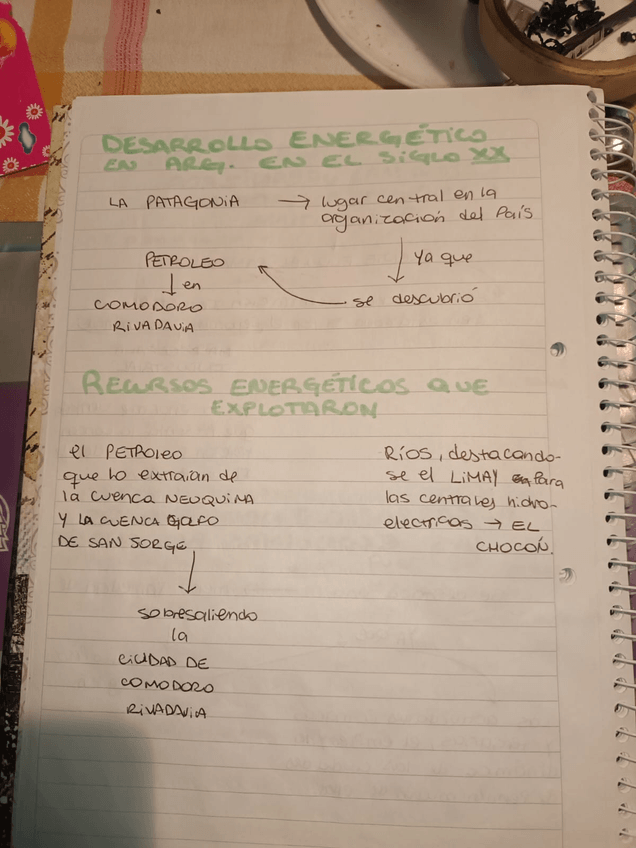 DESARROLLO ENERGÉTICO
EN ARG. EN EL SIGLO XX
LA PATAGONIA → lugar central en la
organización del País
Ya que
se descubrió
PETROLEO
en
COMODORO
RIVADAVIA
RECURSOS ENERGÉTICOS QUE
EXPLOTARON
el PETROLEO
que lo extraian de
la cuenca NEUQUINA
Y LA CUENCA GOLFO
DE SAN JORGE
sobresaliendo
la
CIUDAD DE
COMODORO
RIVADAVIA
RÍOS, destacando-
se el LIMAY para
las centrales hidro-
electricas → EL
CHOCÓN.